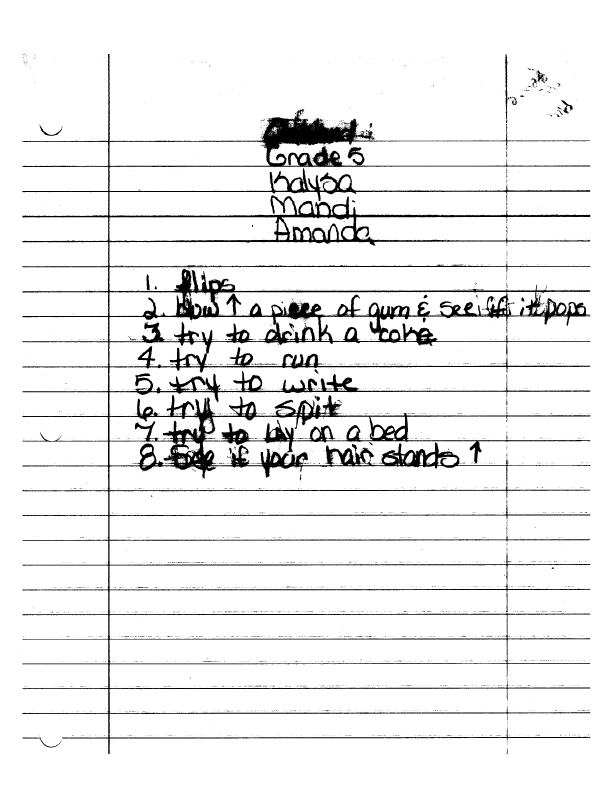 Grade 5
Kalysa
Mandi
Amanda
1. flips
2. blow ↑ a piece of gum & see if it pops
3. try to drink a coke
4. try to run
5. try to write
6. try to spit
7. try to lay on a bed
8. See if your hair stands ↑